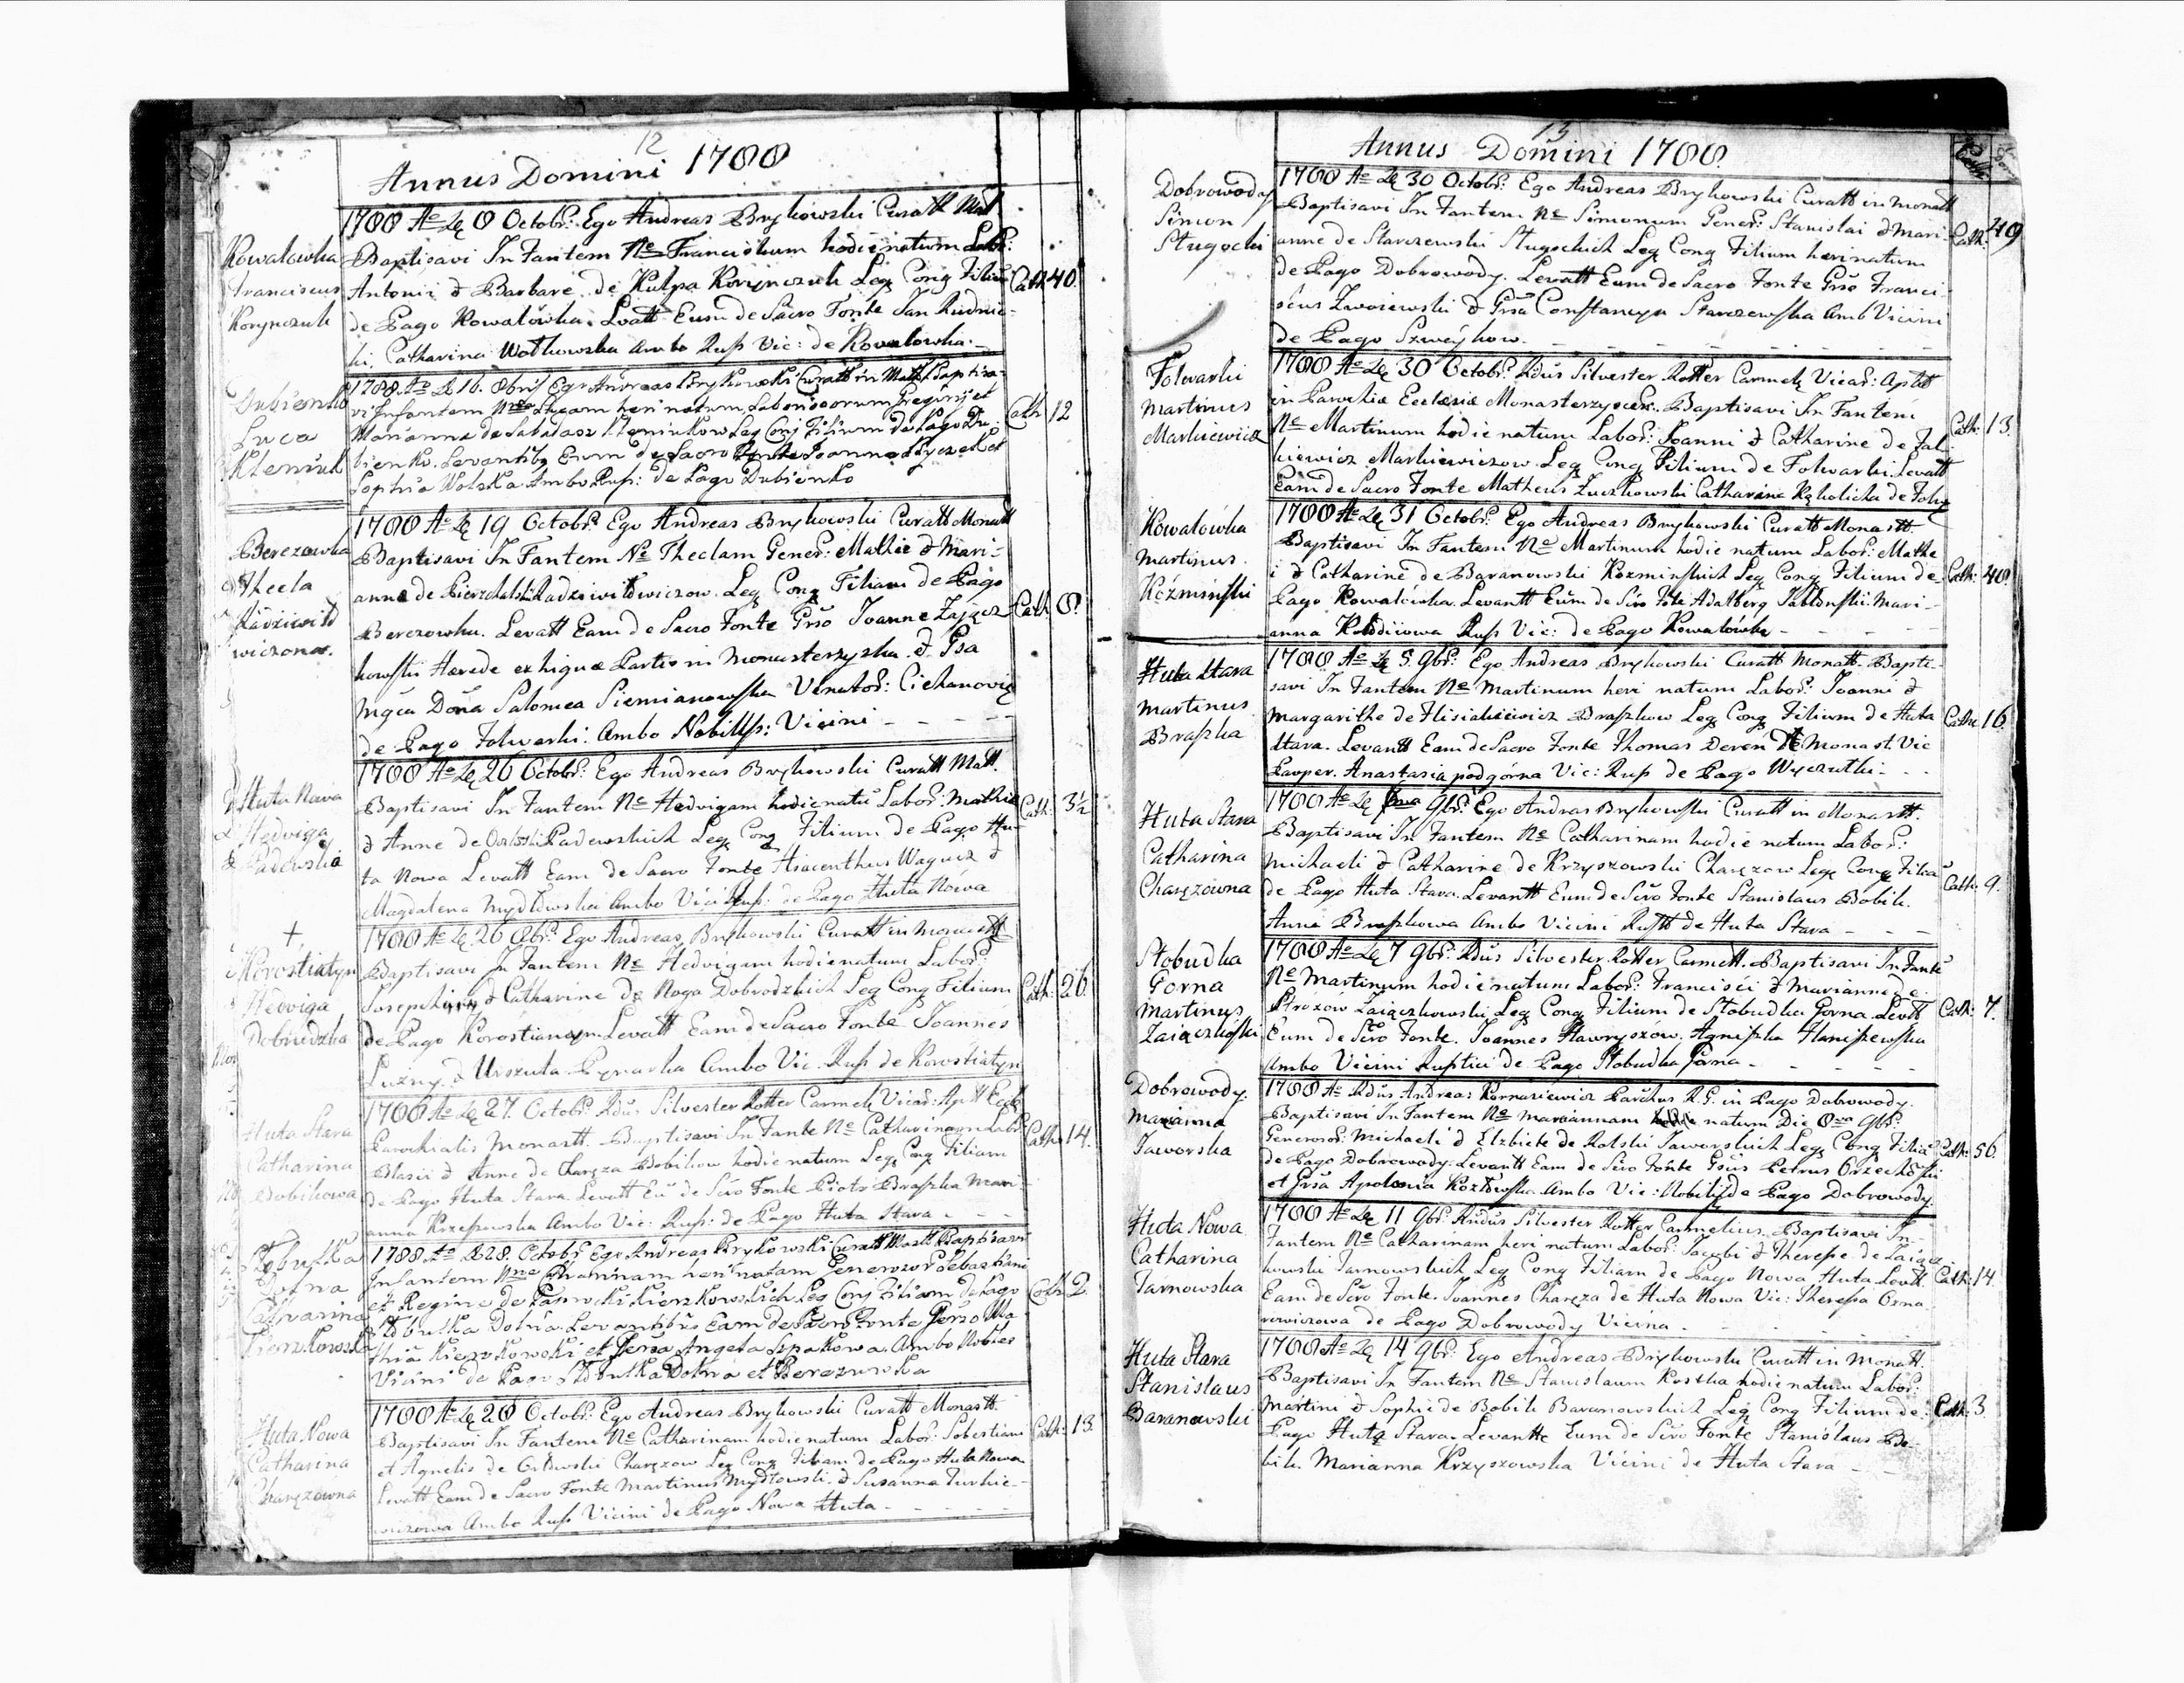 12
Annus Domini 1788
Kowalowka
Franciscus
Korynczuk
1788 Ao De 8 Octobr: Ego Andreas Brykowski Curatt
Baptisavi InFantem Ne Franciskum hodie natum Labr:
Antonii & Barbare de Kulpa Korynczuk Leg Cong Filium
de Pago Kowalowka. Lvatt Eum de Sacro Fonte Jan Rudnic-
ki. Catharina Wotkowska Ambo Rus Vic: de Kowalowka.
Cath 40.
Dubienko
Luca
Kleniuk
1788. Ao De 16. 8bris Ego Andreas Brykowski Curatt in Baptisa-
vi Infantem Nne Lucam heri natum, Laboriosorum Gregorij et
Marianna de Kleniukow Leg Conj Filium de Pago Du-
bienko. Levantibg Eum de Sacro Fonte Joanne et
Sophia Wolska Ambo Rus: de Pago Dubienko
Cath 12
Berezowka
Thecla
Radziwiłł
wiczona.
1788 Ao De 19 Octobr: Ego Andreas Brykowski Curatt Monatt
Baptisavi InFantem Ne Theclam Gener: Mathie & Mari-
anne de Pierzchalski Radziwiłłwiczow. Leg Cong Filiam de Pago
Berezowka. Levatt Eam de Sacro Fonte Grso Joanne Zając-
kowski Herede exhigua Partis in Monasterzyska & Gsa
Mgca Dona Salomea Siemianowska Venator: Ciechanovie
de Pago Folwarki. Ambo Nobilles: Vicini - - - -
Cath 8.
Huta Nova
Hedviga
Padewska
1788 Ao De 26 Octobr: Ego Andreas Brykowski Curatt Matt.
Baptisavi InFantem Ne Hedvigam hodie natu Labor: Mathie
& Anne de Padewskich Leg Cong Filium de Pago Hu-
ta Nowa Levatt Eam de Sacro Fonte Hiacenthus Waguiz &
Magdalena Mydłowska Ambo Vici Rus: de Pago Huta Nowa
Cath: 3½
+
Korostiatyn
Hedviga
Dobrudzka
1788 Ao De 26 8br: Ego Andreas Brykowski Curatt in Monastt
Baptisavi InFantem Ne Hedvigam hodie natum Labor:
Josephi & Catharine de Noga Dobrodzkich Leg Cong Filium
de Pago Korostiatyn. Levatt Eam de Sacro Fonte Joannes
Luzny. & Urszula Pynarka Ambo Vic. Rus de Korostiatyn
Cath: 26.
Huta Stara
Catharina
Bobikowa
1788 Ao De 27. Octobr. Rdus Silvester Rotter Carmel Vicar: Aptt Eccl
Parochialis Monastt. Baptisavi InFante Ne Catharinam Labr
Blasii & Anne de Charęza Bobikow hodie natum Leg Cong Filium
de Pago Huta Stara. Levatt Eu de Scro Fonte Piotr Braszka Mari-
anna Krzeszowska Ambo Vic: Rus: de Pago Huta Stara - - -
Cath 14.
Słobutka
Dolna
Catharina
Kierzkowska
1788. Ao De 28. Octobr Ego Andreas Brykowski Curatt Mostt Baptisavi
Infantem Nne heri natam Generosor Sebastiani
et Regine de Kierzkowskich Leg Conj Filiam de Pago
Słobutka Dolna. Levantibus Eam de Sacro Fonte Grso Ma-
thia Kierzkowski et Grsa Angela Szpakowa. Ambo Nobles
Vicini de Pago Słobutka Dolna et Berezowka
Cath 2
Huta Nowa
Catharina
Charęzowna
1788 Ao De 28 Octobr: Ego Andreas Brykowski Curatt Monastt.
Baptisavi InFantem Ne Catharinam hodie natum Labor: Sobestiani
et Agnetis de Orłowski Charęzow Leg Cong Filiam de Pago Huta Nowa
Levatt Eam de Sacro Fonte Martinus Mydłowski & Susanna Turkie-
wiczowa Ambo Rus Vicini de Pago Nowa Huta - - - -
Cath: 13.
13
Annus Domini 1788
Dobrowody
Simon
Strugocki
1788 Ao De 30 Octobr: Ego Andreas Brykowski Curatt in Monatt
Baptisavi InFantem Ne Simonum Gener: Stanislai & Mari-
anne de Starczewski Stugockich Leg Cong Filium heri natum
de Pago Dobrowody. Levatt Eum de Sacro Fonte Grso Franci-
scus Zwoiewski & Grsa Constancya Starczewska Amb Vicini
de Pago Szweykow - - - - - -
Cath: 49
Folwarki
Martinus
Markiewicz
1788 Ao De 30 Octobr. Rdus Silvester Rotter Carmelg Vicar: Aptt
in Parochia Ecclesia Monasterzyscen. Baptisavi InFantem
Ne Martinum hodie natum Labor: Joanni & Catharine de Fal-
kiewicz Markiewiczow Leg Cong Filium de Folwarki. Levatt
Eam de Sacro Fonte Matheus Zuczkowski Catharina Rękolicka de Folw
Cath: 13.
Kowalowka
Martinus.
Kozminski
1788 Ao De 31 Octobr: Ego Andreas Brykowski Curatt Monastt.
Baptisavi InFantem Ne Martinum hodie natum Labor: Mathe
i & Catharine de Baranowski Kozminskich Leg Cong Filium de
Pago Kowalowka. Levantt Eum de Scro Fote Adalberg Jabłonski. Mari-
anna Kołodiiowa Rus Vic: de Pago Kowalowka - - - -
Cath: 48.
Huta Stara
Martinus
Braszka
1788 Ao De 5. 9br: Ego Andreas Brykowski Curatt Monatt. Bapti-
savi InFantem Ne Martinum heri natum Labor: Joanni &
Margarithe de Braszkow Leg Cong Filium de Huta
Stara. Levantt Eam de Sacro Fonte Thomas Deren De Monast. Vic
Pauper. Anastasia podgórna Vic: Rus de Pago Wyczutki - - -
Cath 16.
Huta Stara
Catharina
Charęzowna
1788 Ao De 9br: Ego Andreas Brykowski Curatt in Monastt.
Baptisavi InFantem Ne Catharinam hodie natum Labor:
Michaeli & Catharine de Krzyszowski Charęzow Leg Cong Filia
de Pago Huta Stara. Levantt Eum de Scro Fonte Stanislaus Bobik.
Anna Braszkowa Ambo Vicini Rustt de Huta Stara - - -
Cath: 9.
Słobudka
Gorna
Martinus
Zaiączkoski
1788 Ao De 7 9br: Rdus Silvester Rotter Carmett. Baptisavi InFante
Ne Martinum hodie natum Labor: Francisci & Marianne de
Strozów Zaiączkowski Leg Cong Filium de Słobudka Gorna Levtt
Eum de Scro Fonte. Joannes Hawryszów. Agniszka Haniszewska
Ambo Vicini Rustici de Pago Słobudka Gorna - - - -
Cath: 7.
Dobrowody.
Marianna
Jaworska
1788 Ao Rdus Andreas Kornasiewicz Parchus R.G. in Pago Dobrowody.
Baptisavi InFantem Ne Mariannam natum Die 8va 9br:
Generosor: Michaeli & Elzbiete de Rolski Jaworskich Leg Cong Filia
de Pago Dobrowody. Levantt Eam de Scro Fonte Gsus Petrus Orzechoski
et Grsa Apolonia Kozłowska Ambo Vic: Nobilij de Pago Dobrowody.
Cath: 56
Huta Nowa
Catharina
Tarnowska
1788 Ao De 11 9br: Rndus Silvester Rotter Carmelius. Baptisavi In-
Fantem Ne Catharinam heri natum Labor: Jacobi & Therese de Zaiącz-
kowski Tarnowskich Leg Cong Filiam de Pago Nowa Huta Levtt
Eam de Scro Fonte. Joannes Charęza de Huta Nowa Vic: Theresa Orna-
rowiczowa de Pago Dobrowody Vicina - - - -
Cath: 14.
Huta Stara
Stanislaus
Baranowski
1788 Ao De 14 9br: Ego Andreas Brykowski Curatt in Monatt.
Baptisavi InFantem Ne Stanislaum Kostka hodie natum Labor:
Martini & Sophie de Bobik Baranowskich Leg Cong Filium de
Pago Huta Stara. Levantte Eum de Scro Fonte Stanislaus Bo-
bik. Marianna Krzyszowska Vicini de Huta Stara - -
Cath: 3.